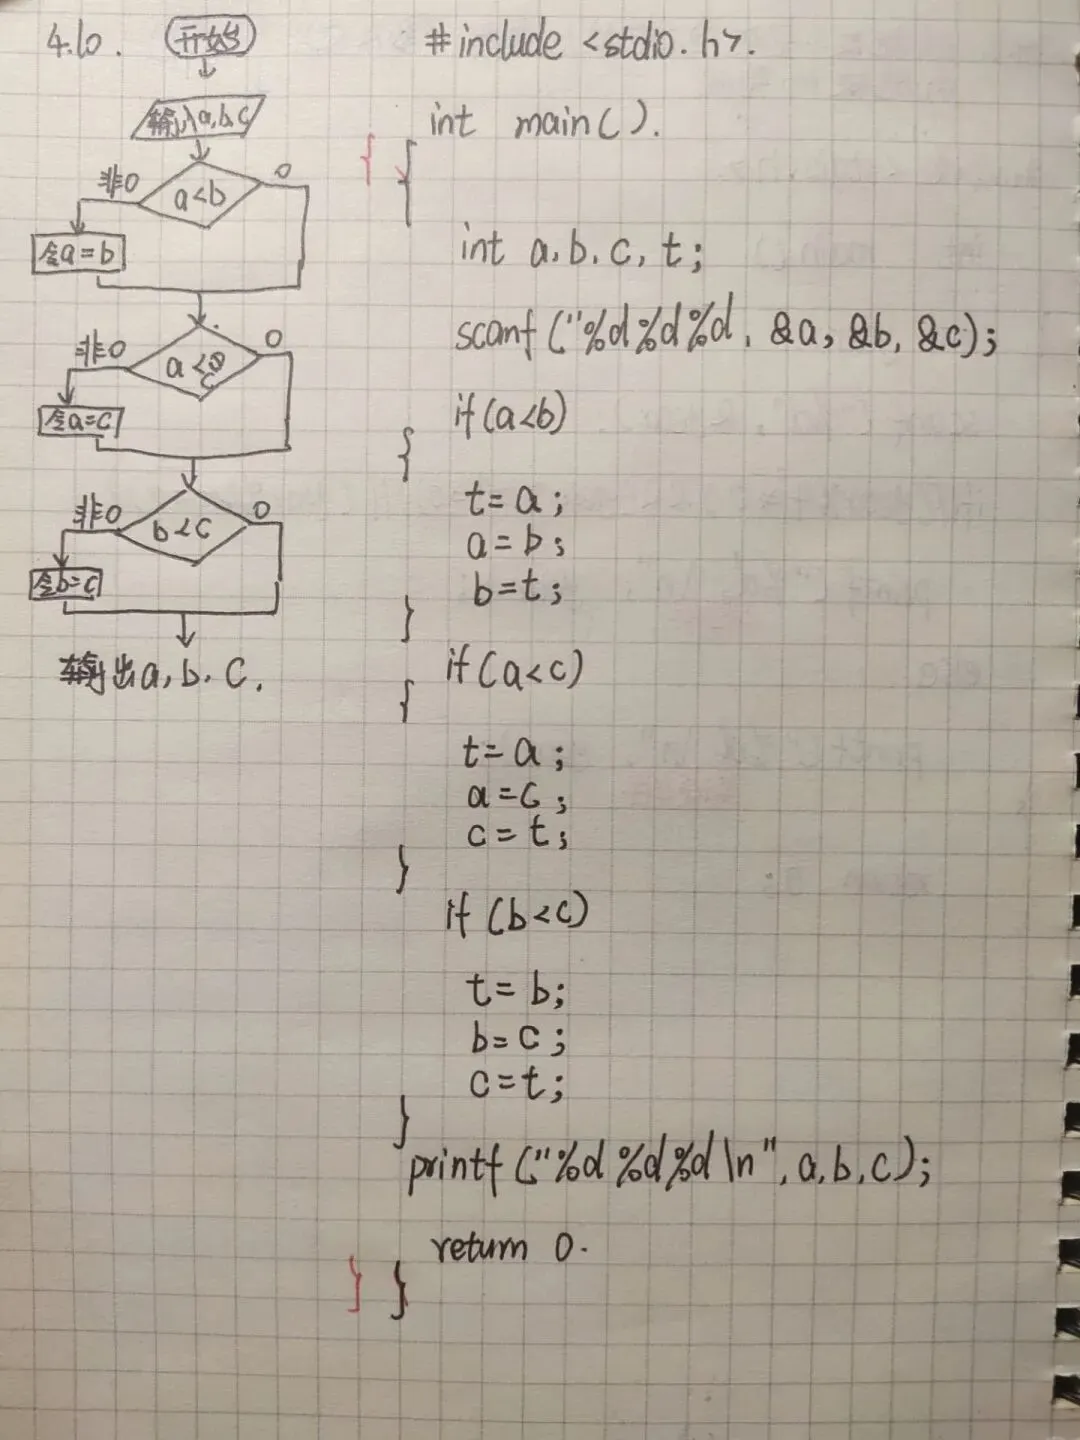 4.10.
开始
输入a,b,c
非0
a<b
0
令a=b
非0
a<c
0
令a=c
非0
b<c
0
令b=c
输出a,b.c.
#include <stdio.h>.
int main().
{ {
int a.b.c,t;
scanf("%d%d%d, &a, &b, &c);
if(a<b)
{
t=a;
a=b;
b=t;
}
if(a<c)
{
t=a;
a=c;
c=t;
}
if(b<c)
t=b;
b=c;
c=t;
}
printf("%d%d%d\n",a,b,c);
return 0.
} }